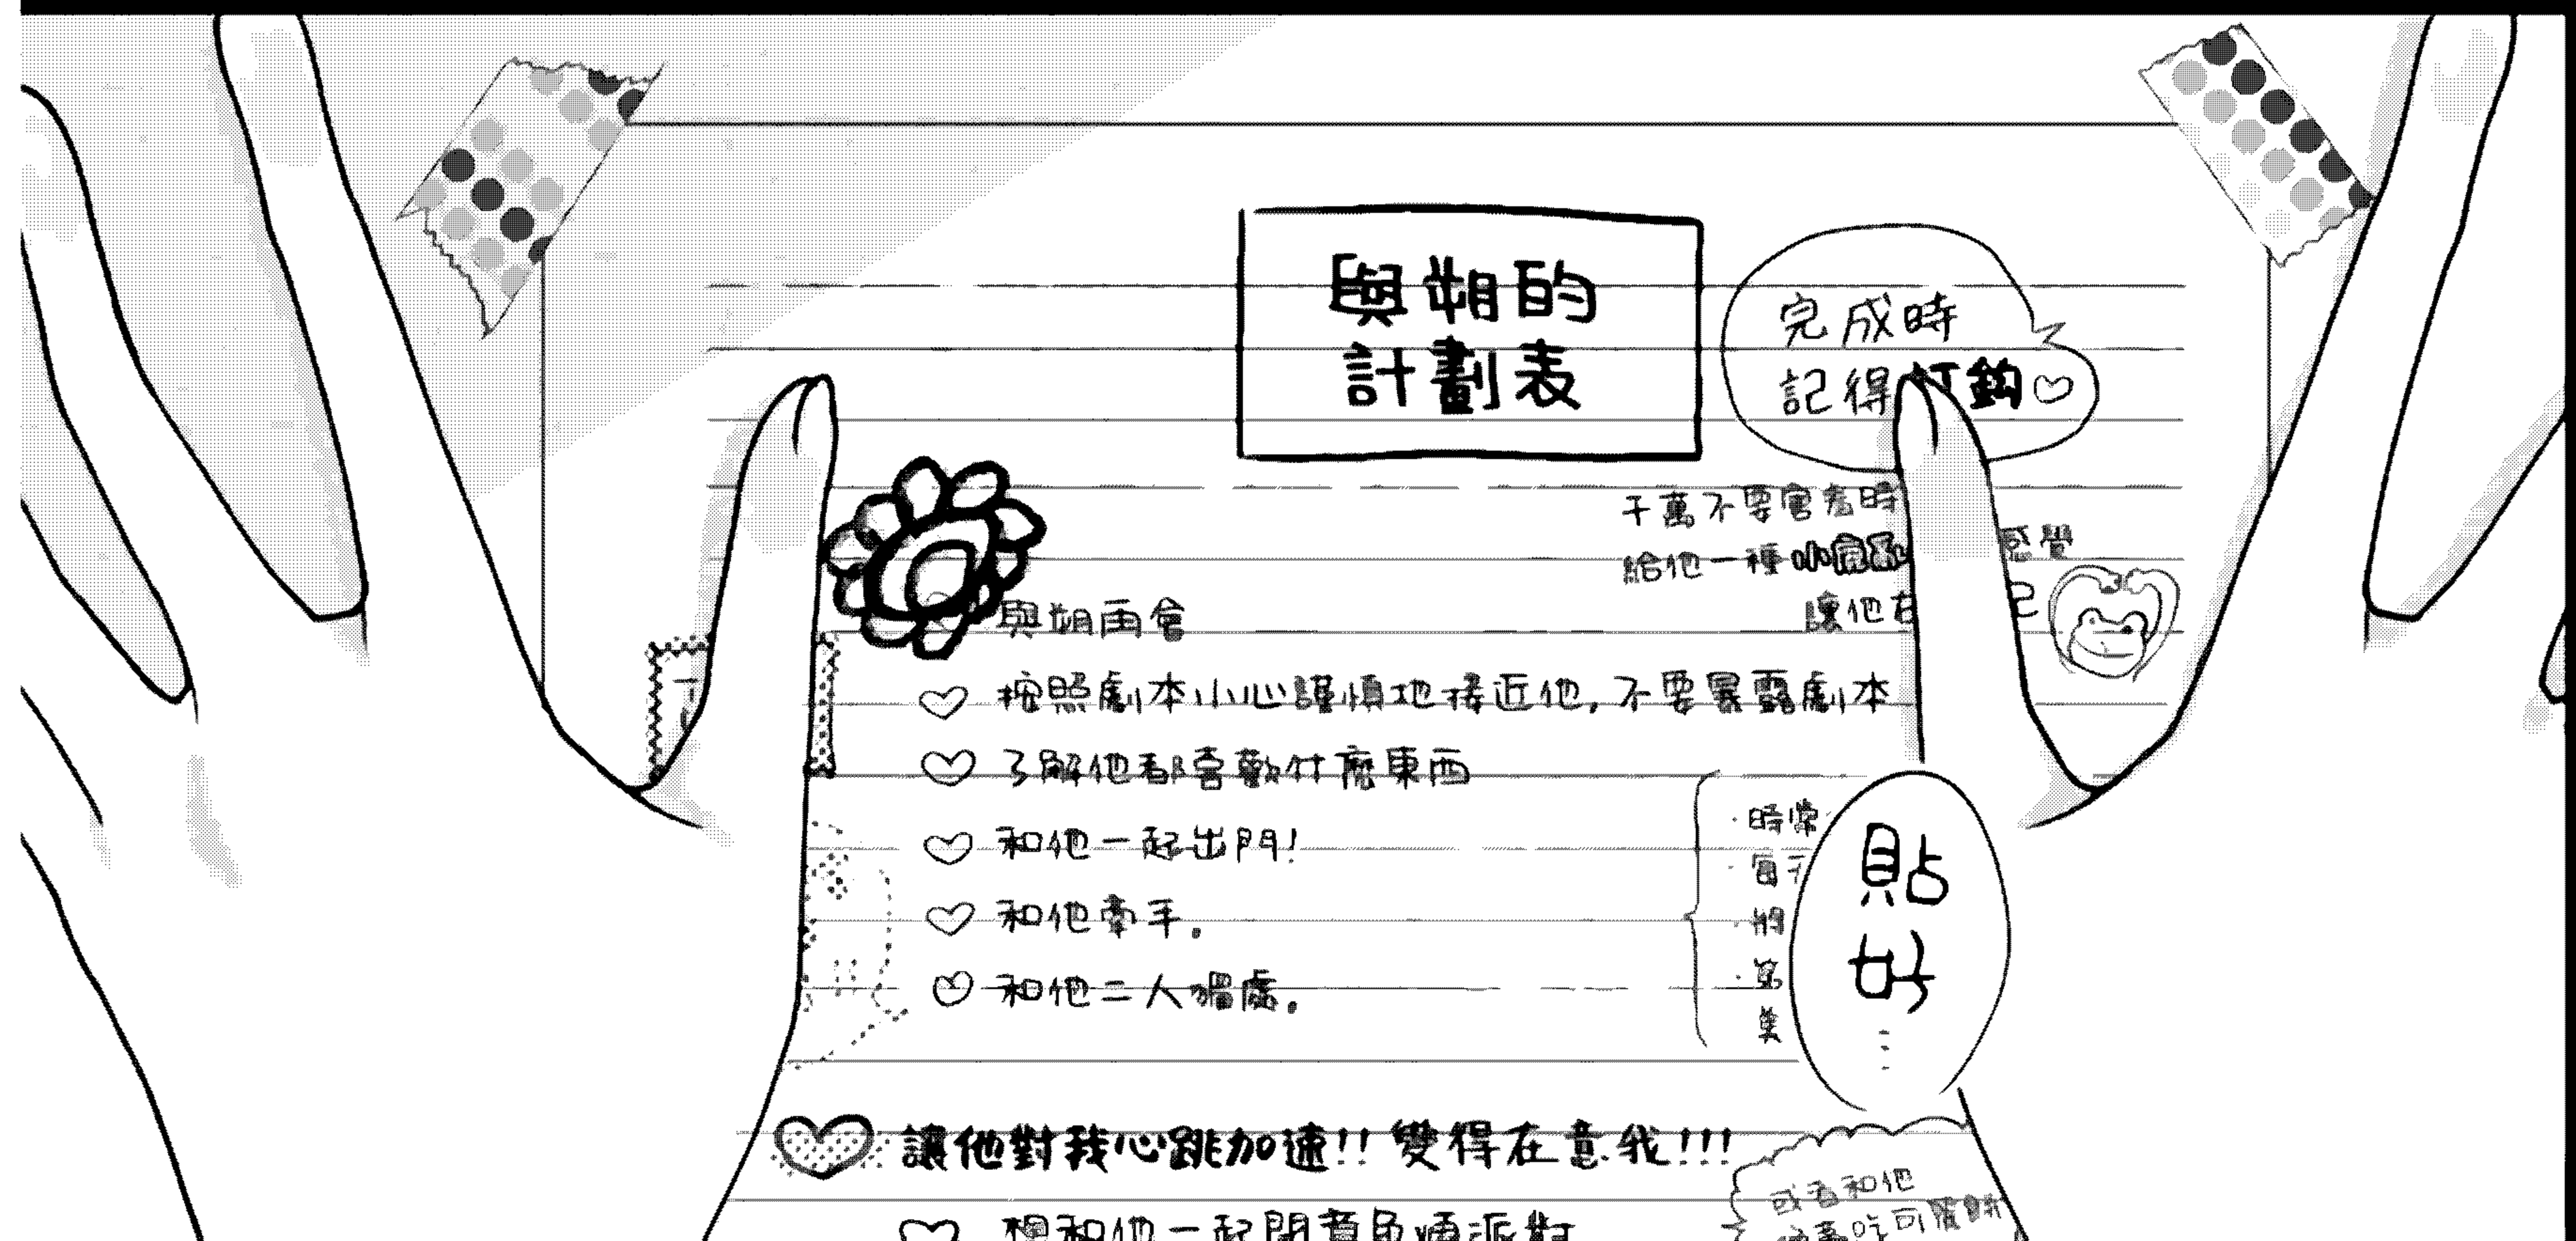 與朔的
計劃表
完成時
記得打鉤
千萬不要害羞時
給他一種小偷
感覺
讓他在
己
與朔再會
按照劇本小心謹慎地接近他，不要暴露劇本
了解他都喜歡什麼東西
和他一起出門！
和他牽手。
和他二人獨處。
時常
將
貼
好
⋮
讓他對我心跳加速!! 變得在意我!!!
想和他一起開章魚燒派對
或者和他
吃可麗餅